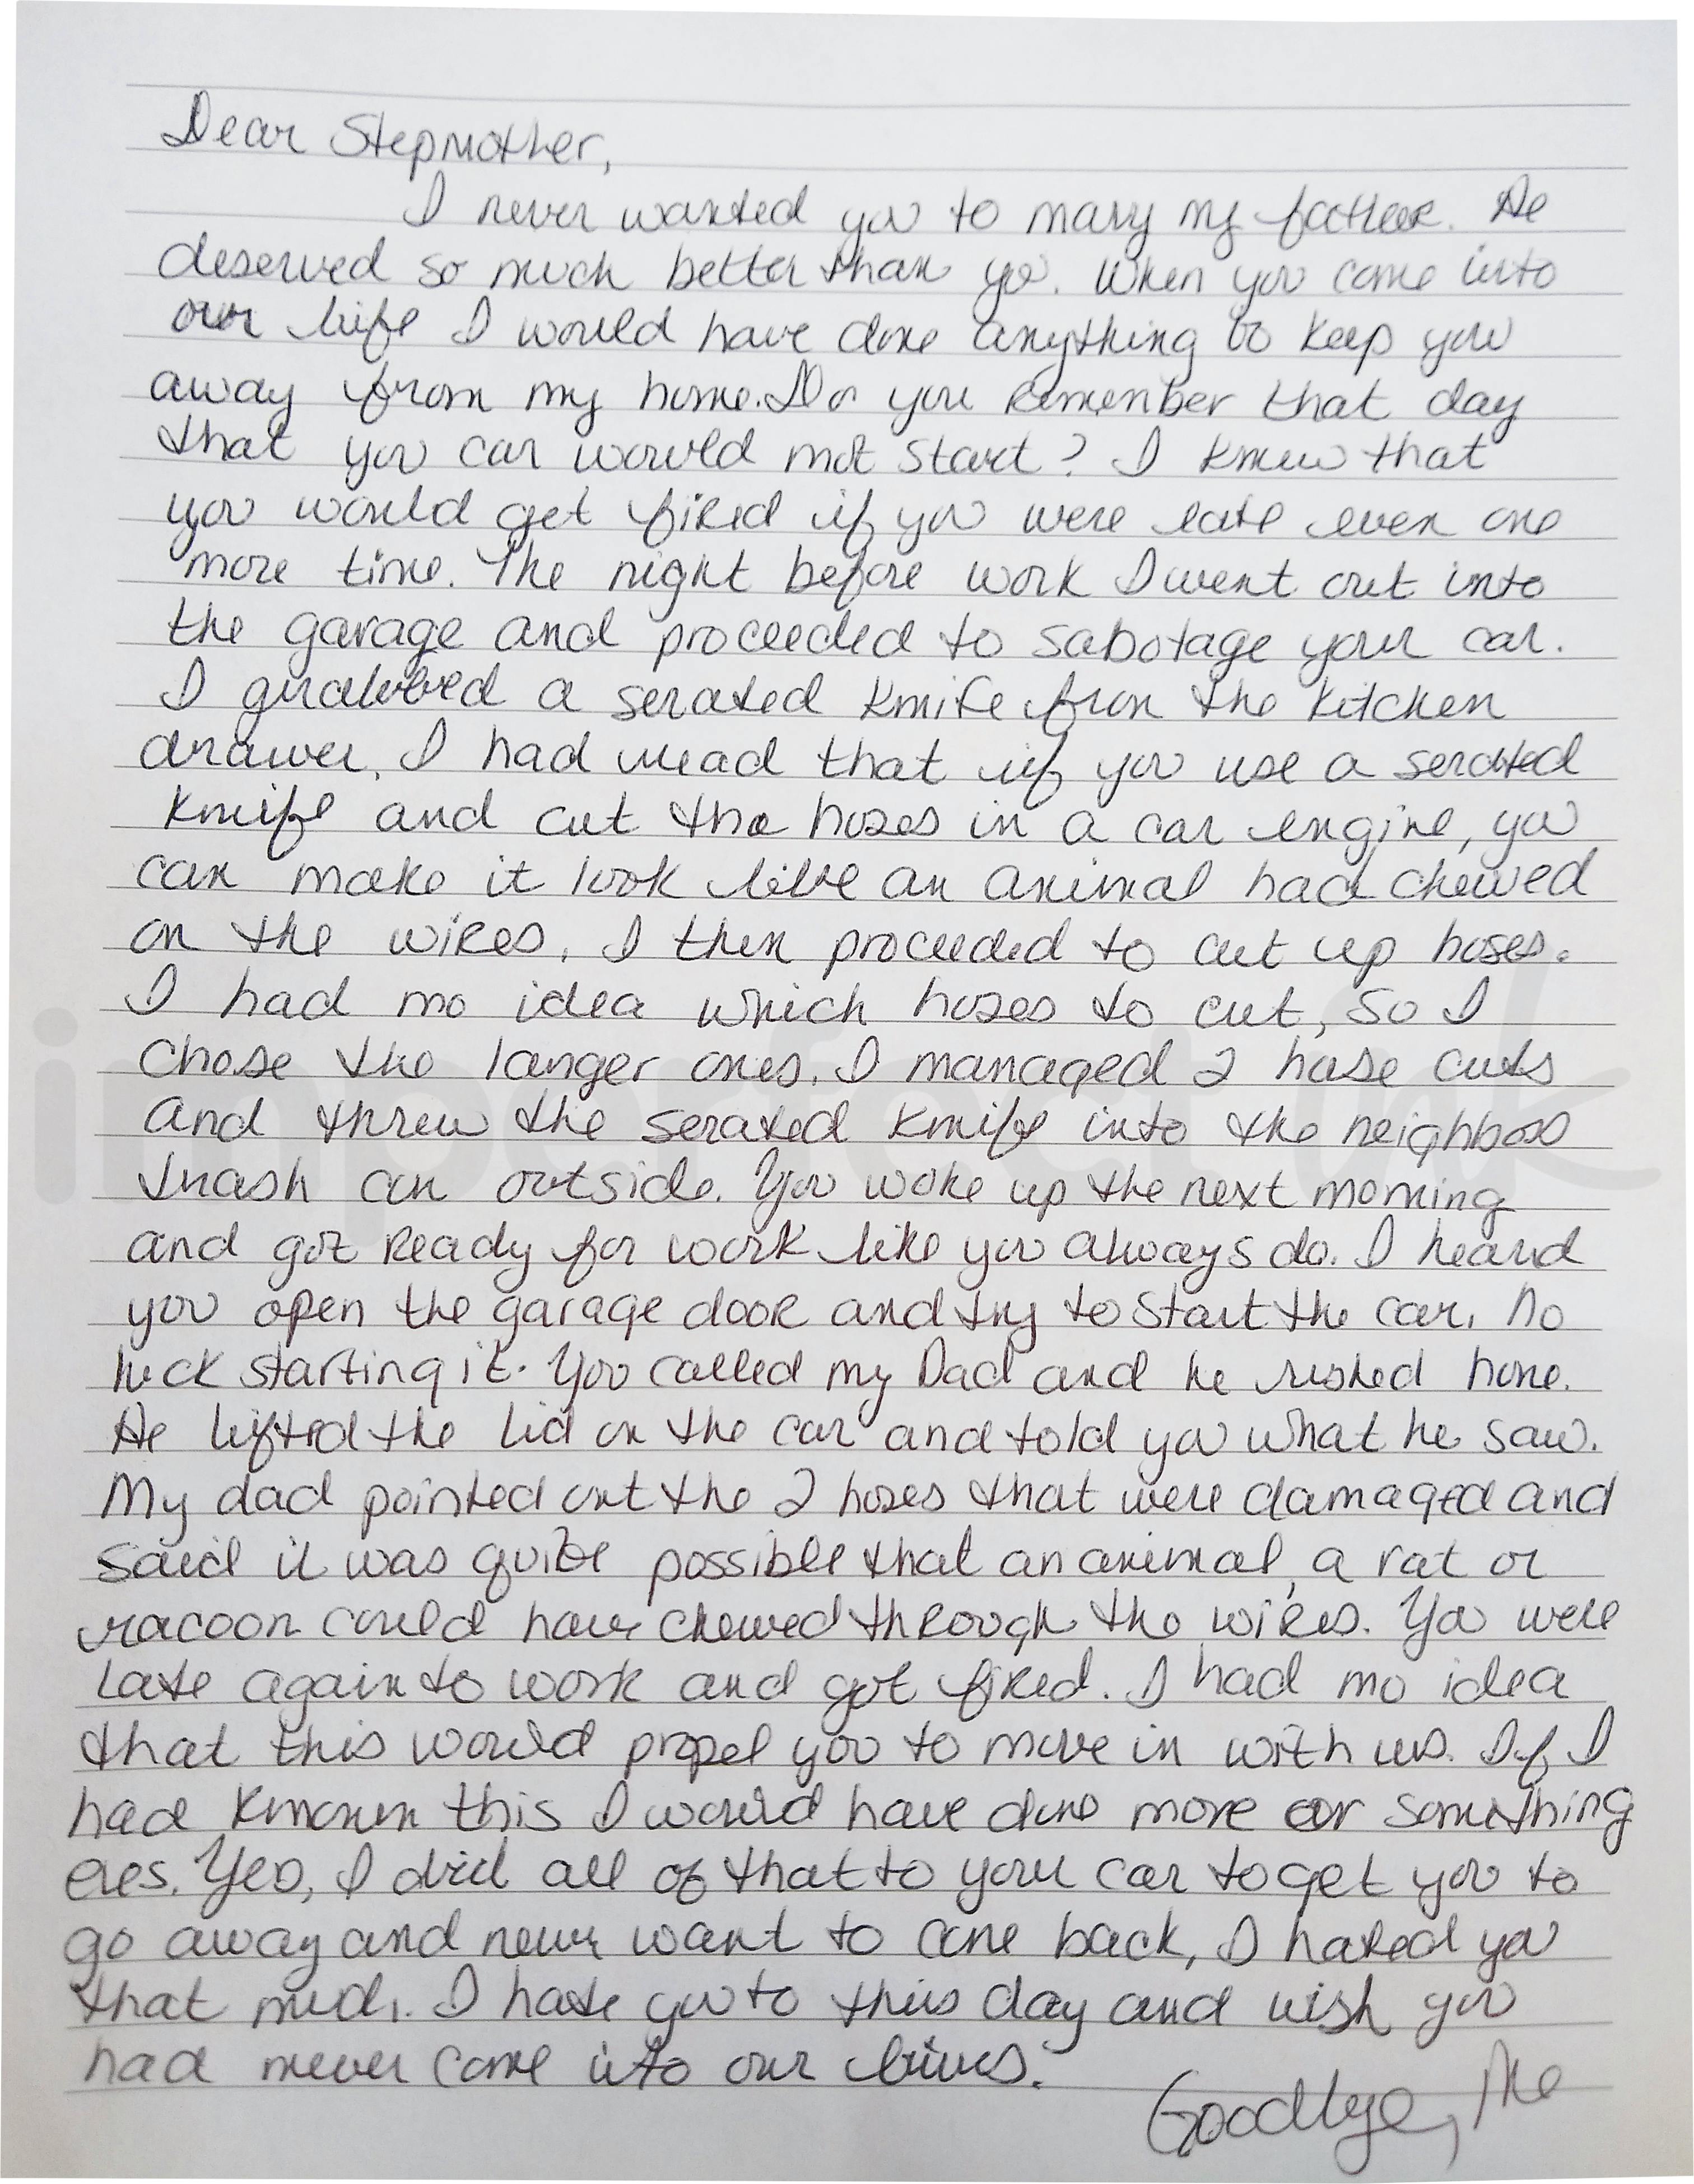 Dear Stepmother,
I never wanted you to mary my father. He
deserved so much better than you. When you come into
our life I would have done anything to keep you
away from my home. Do you remember that day
that you car would not start? I knew that
you would get fired if you were late even one
more time. The night before work I went out into
the garage and proceeded to sabotage your car.
I grabbed a serated knife from the kitchen
drawer. I had read that if you use a serated
knife and cut the hoses in a car engine, you
can make it look like an animal had chewed
on the wires. I then proceeded to cut up hoses.
I had no idea which hoses to cut, so I
chose the larger ones. I managed 2 hose cuts
and threw the serated knife into the neighbors
trash can outside. You woke up the next morning
and got ready for work like you always do. I heard
you open the garage door and try to start the car. No
luck starting it. You called my Dad and he rushed home.
He lifted the lid on the car and told you what he saw.
My dad pointed out the 2 hoses that were damaged and
said it was quite possible that an animal, a rat or
racoon could have chewed through the wires. You were
late again to work and got fired. I had no idea
that this would propel you to move in with us. If I
had known this I would have done more or something
eles. Yes, I did all of that to your car to get you to
go away and never want to come back, I hated you
that much. I hate you to this day and wish you
had never come into our lives.
Goodbye, Me
imperfect ink